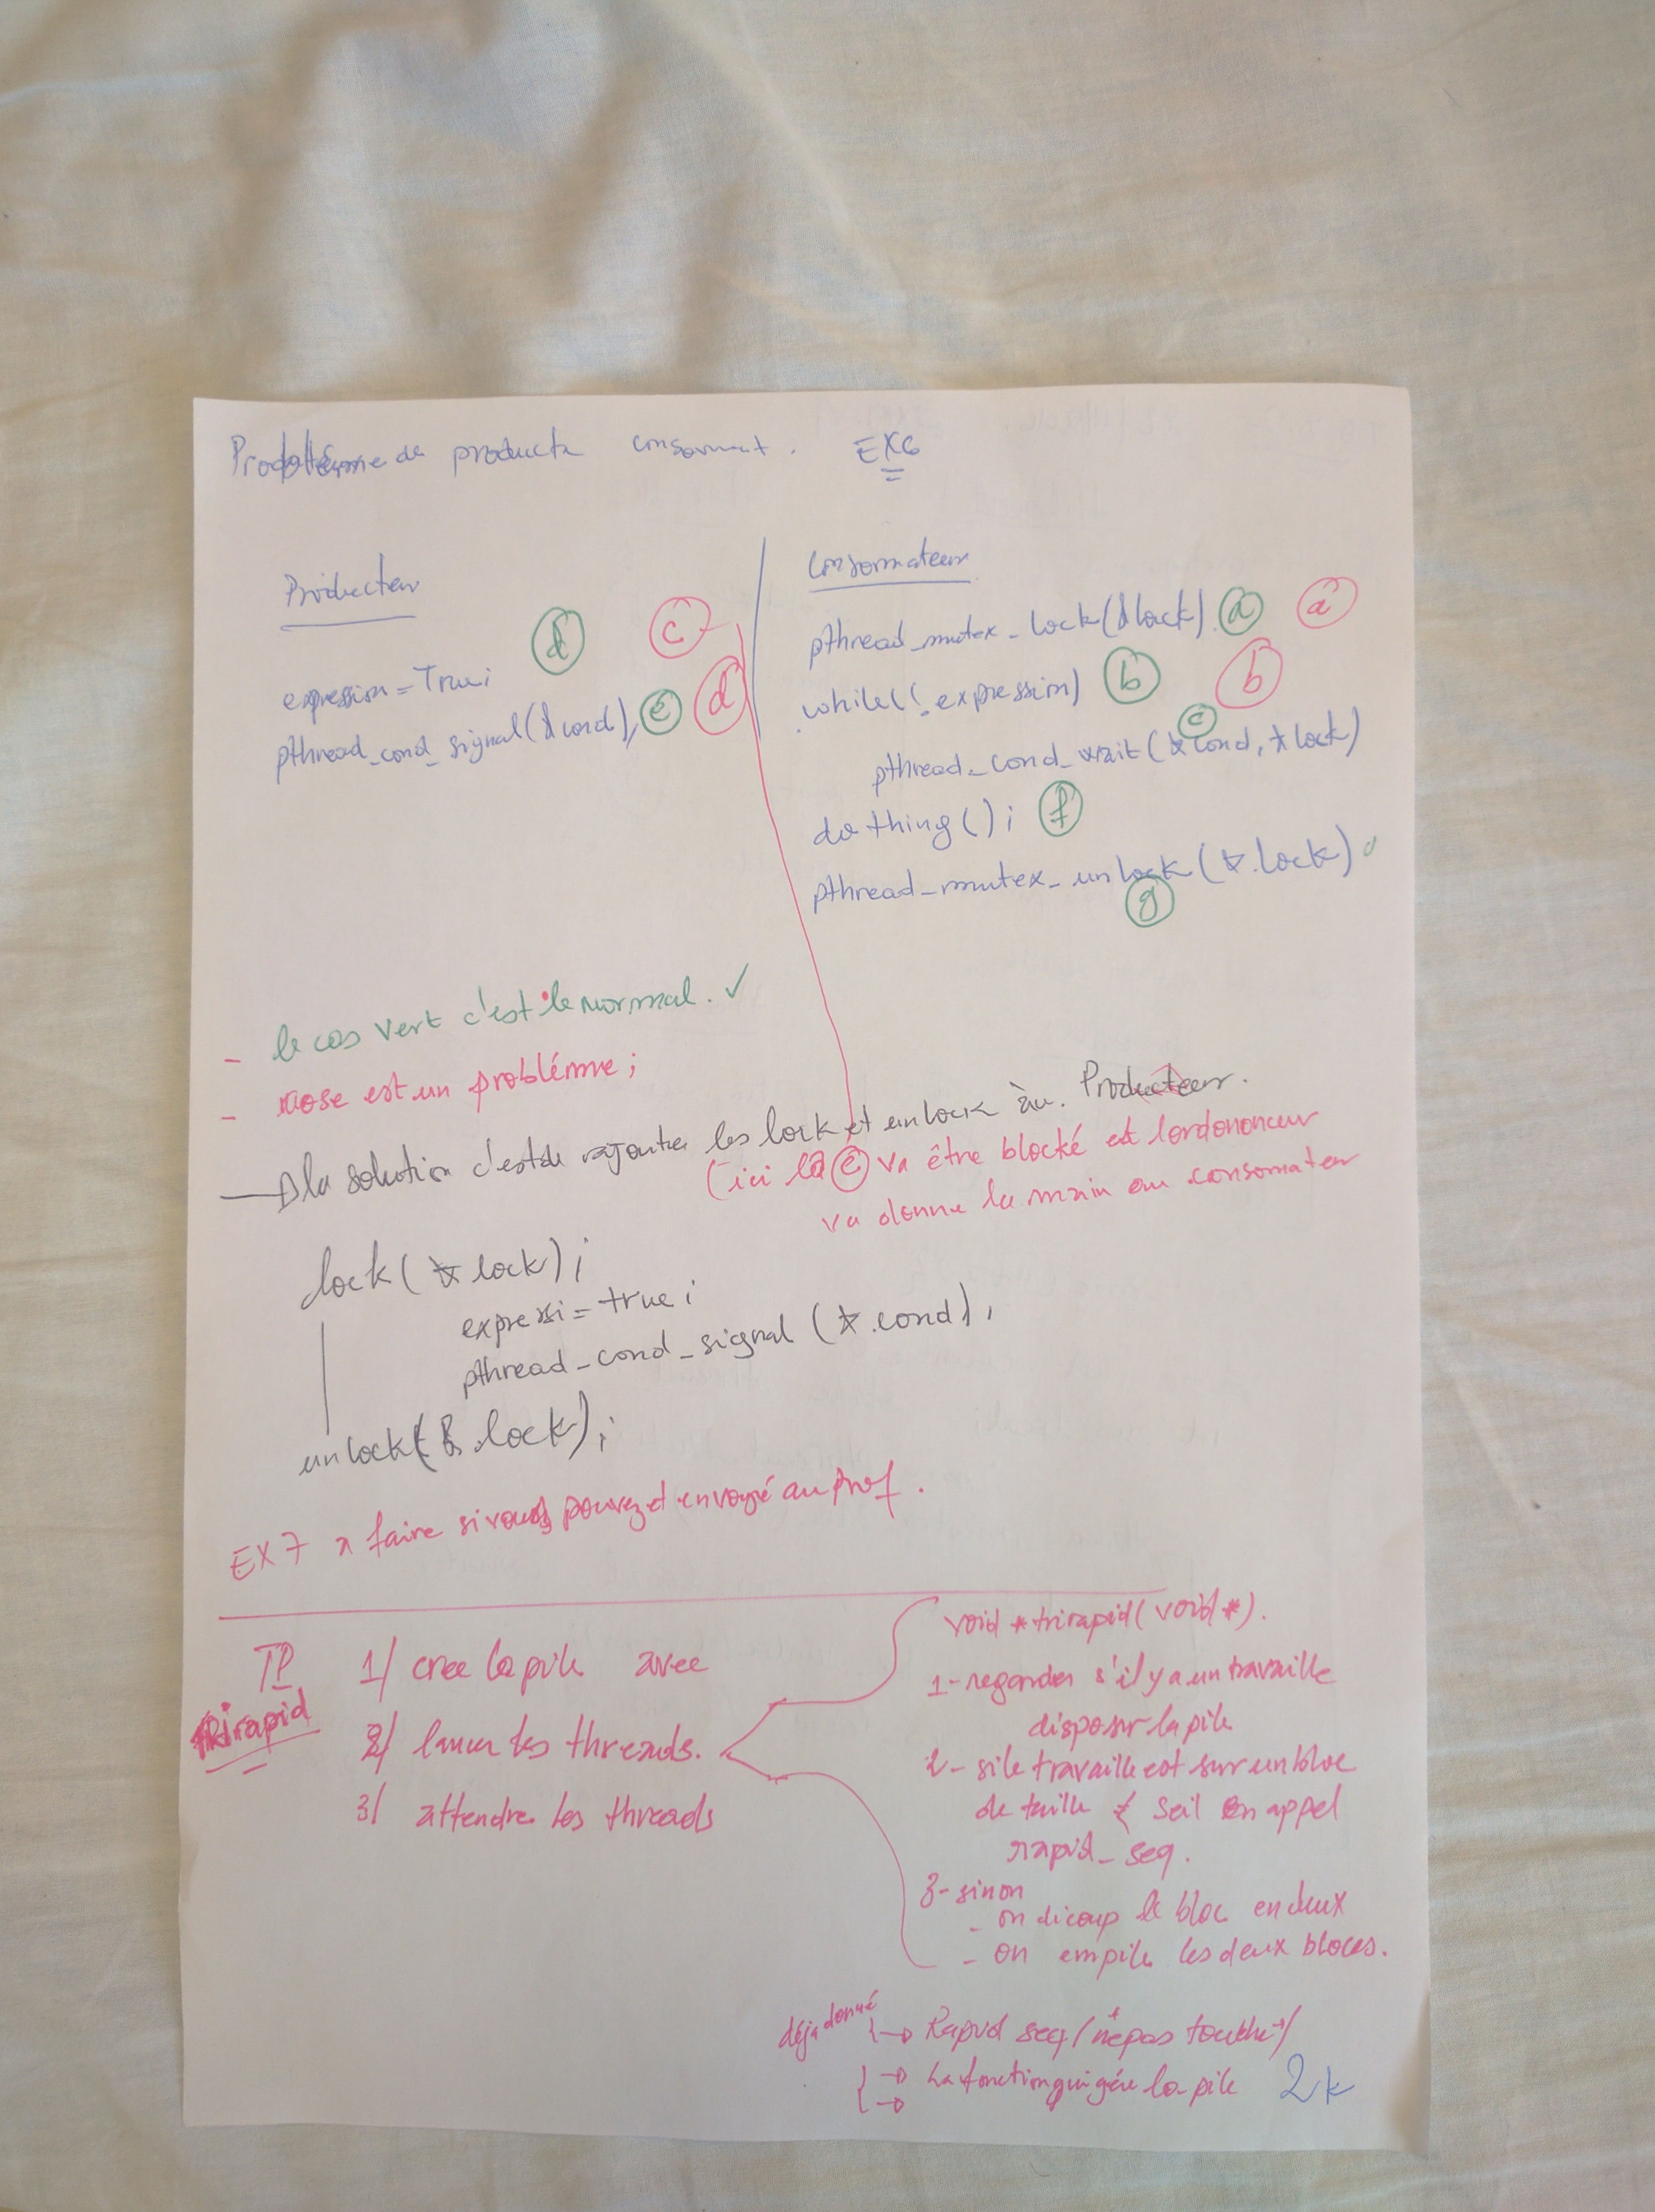 Problème de producte consommat. EX6
Producteur
expression = True;
d
c
pthread_cond_signal(&cond),
e
d
Consormateur
pthread_mutex_lock(&lock).
a
a
while(!expression)
b
b
c
pthread_cond_wait(&cond, &lock)
do thing();
f
pthread_mutex_unlock(&lock)
g
- le cas vert c'est le normal. ✓
- rose est un problème;
la solution c'est de rajouter les lock et unlock au. Producteur.
(ici la c va être blocké et lordononceur
va donne la main au consomateur
lock(&lock);
expressi = true;
pthread_cond_signal(&cond),
unlock(&lock);
EX7 a faire si vous pouvez et envoyé au prof.
TP
trirapid
1/ cree la pile avec
2/ lancer les threads.
3/ attendre les threads
void *trirapid(void*).
1- regarder s'il y a un travaille
disposur la pile
2- si le travaille est sur un bloc
de taille ≤ seil on appel
rapid_seq.
3- sinon
- on dicoup le bloc en deux
- on empile les deux blocs.
déja donné
→ Rapid seq (ne pas touche)
→ La fonction qui gére la pile
→
2k